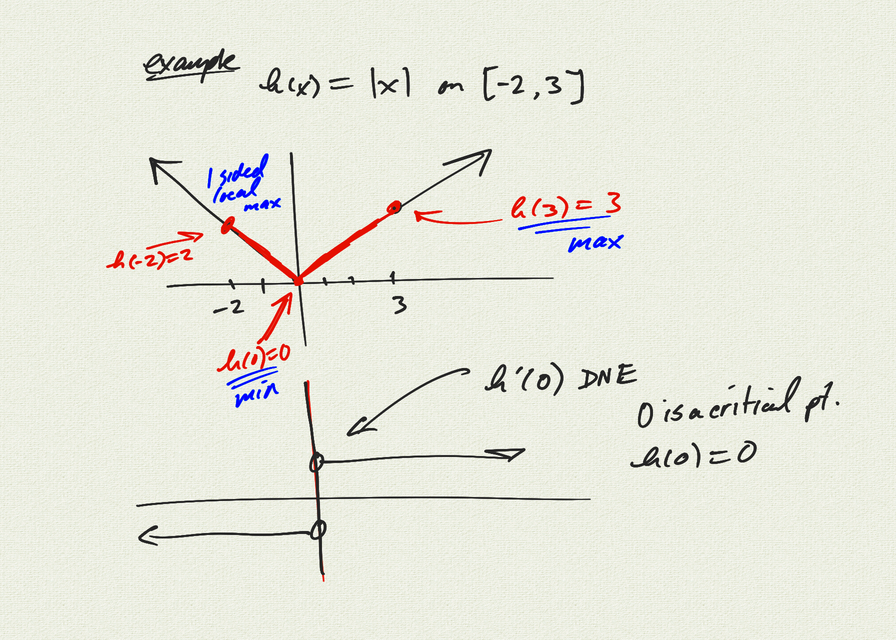 example
h(x) = |x| on [-2, 3]
1 sided
local
max
h(3) = 3
max
h(-2)=2
-2
3
h(0)=0
min
h'(0) DNE
0 is a critical pt.
h(0) = 0